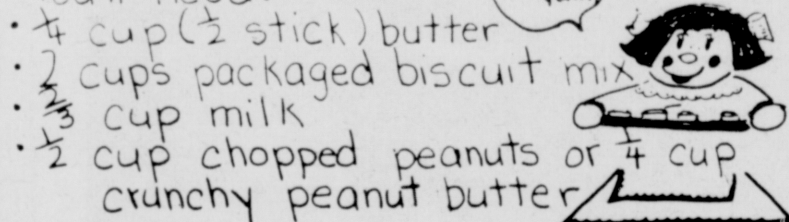 · 1/4 cup (1/2 stick) butter
· 2 cups packaged biscuit mix
· 2/3 cup milk
· 1/2 cup chopped peanuts or 1/4 cup
crunchy peanut butter